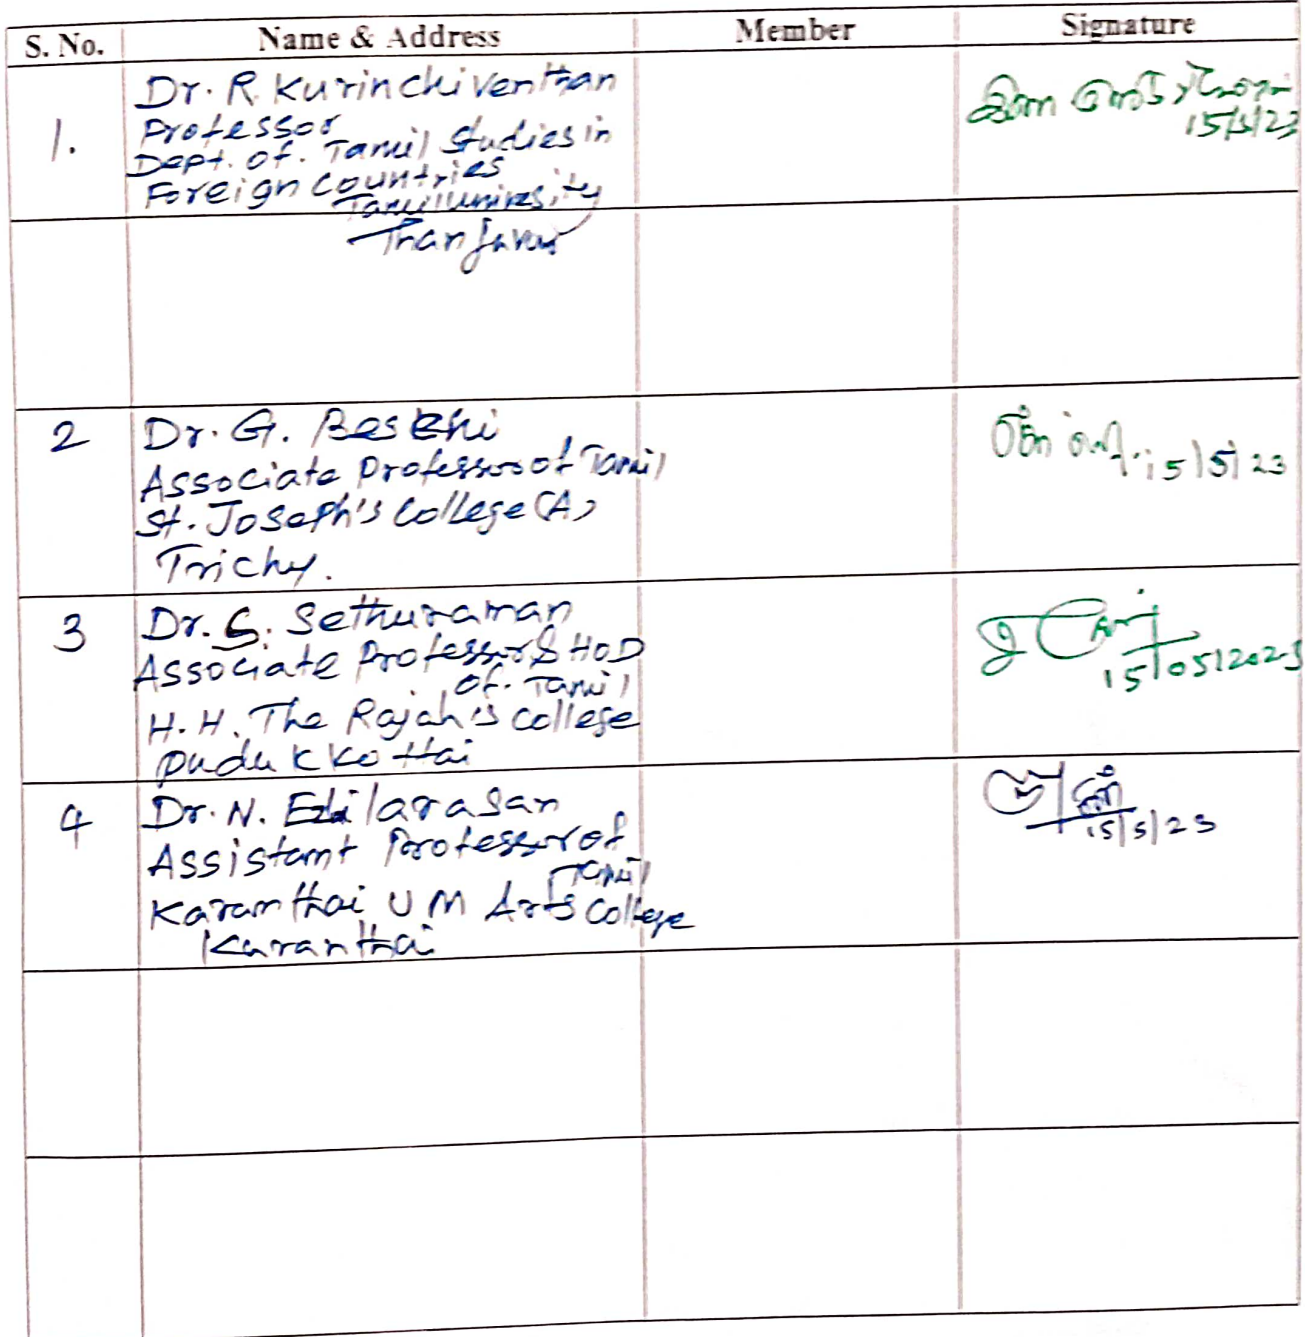 S. No. Name & Address Member Signature
1. Dr. R. Kurinchiventhan
Professor
Dept. of. Tamil Studies in
Foreign Countries
Tamil University
Thanjavur
15/5/23
2 Dr. G. Beschi
Associate Professor of Tamil
St. Joseph's College (A)
Trichy.
15/5/23
3 Dr. S. Sethuraman
Associate Professor & HOD
of. Tamil
H. H. The Rajah's College
Pudukkottai
15/05/2023
4 Dr. N. Ezhilarasan
Assistant Professor of
Tamil
Karanthai U M Arts College
Karanthai
15/5/23